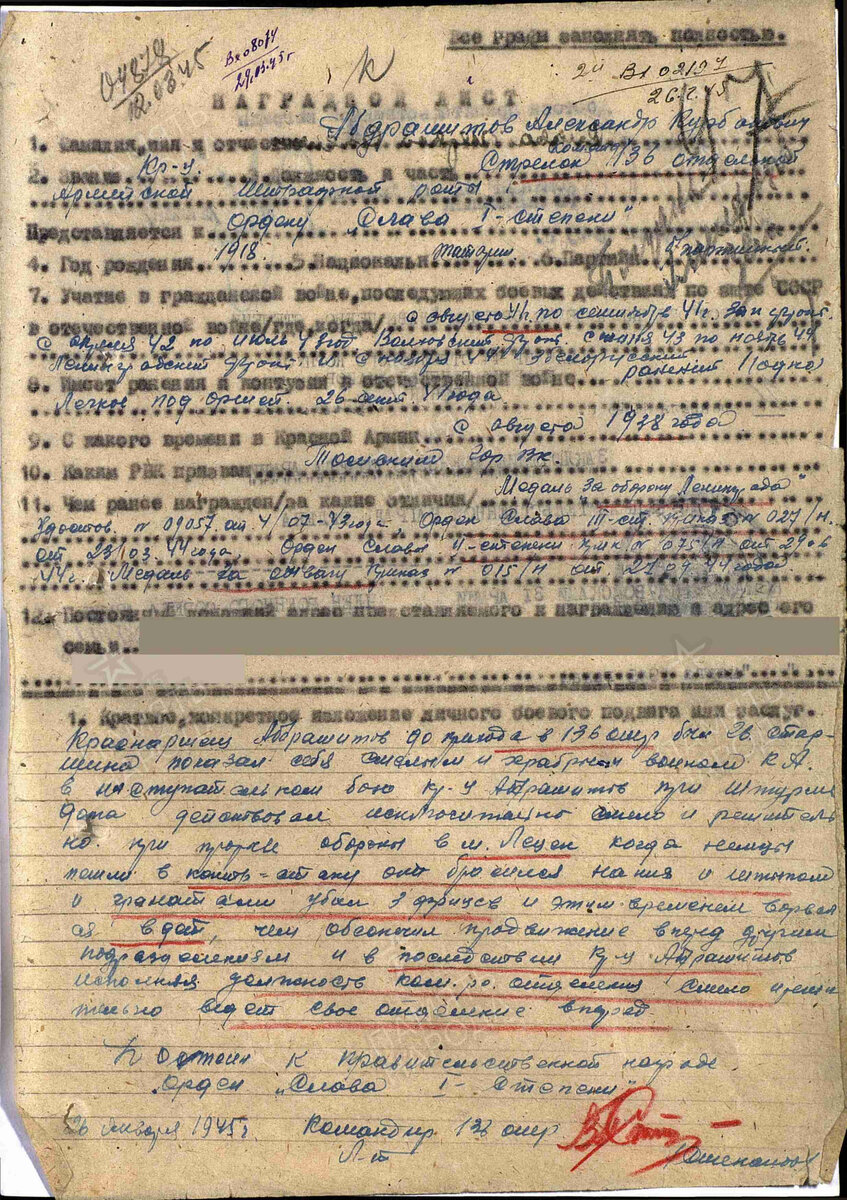 Все графы заполнять полностью.
04878
12.03.45
Вх 08074
29.03.45 г
2й Вх 02197
26
НАГРАДНОЙ ЛИСТ
1. Фамилия, имя и отчество Абдрашитов Александр Курбанович
2. Звание Кр-ц 3. Должность и часть Стрелок 136 отдельной
Армейской Штрафной роты
Представляется к Ордену „Слава I-степени"
4. Год рождения 1918. 5. Национальн. татарин 6. Партийн.
7. Участие в гражданской войне, последующих боевых действиях по защите СССР
в отечественной войне/где, когда/ с августа 41 г. по сентябрь 41 г. Зап фронт
с 42 по июль 43 год Волховский фронт. с 43 по ноябрь 44
Ленинградский фронт и с 44
8. Имеет ранения и контузии в отечественной войне ранение 1 одно
Легкое под Оршей. 26 сент. 41 года.
9. С какого времени в Красной Армии с августа 1938 года
10. Каким РВК призван Гор вк.
11. Чем ранее награжден/за какие отличия/ Медаль „За оборону Ленинграда"
Удостов. № 09057 от 4/07-43 года, Орден Слава III-ст. приказ № 027/н.
от 23/03.44 года, Орден Славы II-степени прик № 075/н от 29.6
44 г. Медаль за отвагу приказ № 015/н от 27.04 44 годой
12. Постоянный домашний адрес представляемого к награждению и адрес его
семьи
1. Краткое, конкретное изложение личного боевого подвига или заслуг.
Красноармеец Абдрашитов до прихода в 136 ошр был стар-
шина показал себя смелым и храбрым воином К.А.
в наступательном бою кр-ц Абдрашитов при штурме
дота действовал исключительно смело и решитель
но при прорыве обороны в м. Лецен когда немцы
пошли в контр-атаку он бросился на них и штыком
и гранатами убил 3 фрицев и этим временем ворвал
ся в дот, чем обеспечил продвижение вперед другим
подразделениям и в последствии кр-ц Абрашитов
исполняя должность ком-ра отделения смело и реши
тельно ведет свое отделение вперед.
Достоин к правительственной награде
Орден „Слава I- Степени"
26 января 1945 г. Командир 136 ошр
Л-т